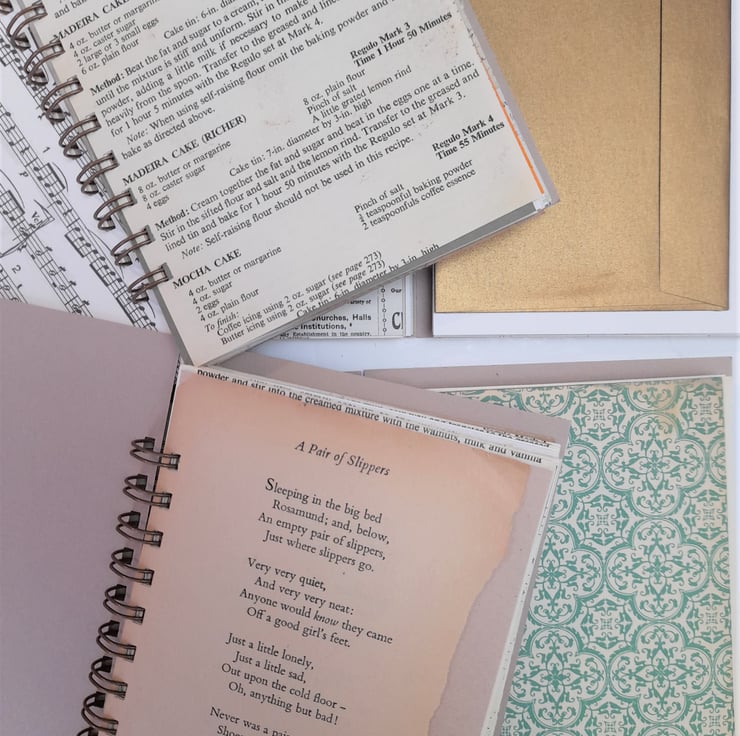 and bake
MADEIRA CAKE
4 oz. butter or margarine
4 oz. caster sugar
2 large or 3 small eggs
6 oz. plain flour
Cake tin: 6-in.
Method: Beat the fat and sugar to a cream,
until the mixture is stiff and uniform. Stir in
powder, adding a little milk if necessary to make
heavily from the spoon. Transfer to the greased and lined
for 1 hour 5 minutes with the Regulo set at Mark 4.
Note: When using self-raising flour omit the baking powder and
bake as directed above.
Regulo Mark 3
Time 1 Hour 50 Minutes
MADEIRA CAKE (RICHER)
8 oz. butter or margarine
8 oz. caster sugar
4 eggs
8 oz. plain flour
Pinch of salt
A little grated lemon rind
Cake tin: 7-in. diameter by 3-in. high
Method: Cream together the fat and sugar and beat in the eggs one at a time.
Stir in the sifted flour and salt and the lemon rind. Transfer to the greased and
lined tin and bake for 1 hour 50 minutes with the Regulo set at Mark 3.
Note: Self-raising flour should not be used in this recipe.
Regulo Mark 4
Time 55 Minutes
MOCHA CAKE
4 oz. butter or margarine
4 oz. sugar
2 eggs
4 oz. plain flour
Pinch of salt
¾ teaspoonful baking powder
2 teaspoonfuls coffee essence
To finish:
Coffee icing using 2 oz. sugar (see page 273)
Butter icing using 2 oz. sugar (see page 273)
Cake tin: 6-in. diameter by 3-in. high
Churches, Halls
Institutions,
Establishment in the country.
powder and stir into the creamed mixture with the walnuts, milk and vanilla
A Pair of Slippers
Sleeping in the big bed
Rosamund; and, below,
An empty pair of slippers,
Just where slippers go.
Very very quiet,
And very very neat:
Anyone would know they came
Off a good girl's feet.
Just a little lonely,
Just a little sad,
Out upon the cold floor –
Oh, anything but bad!
Never was a